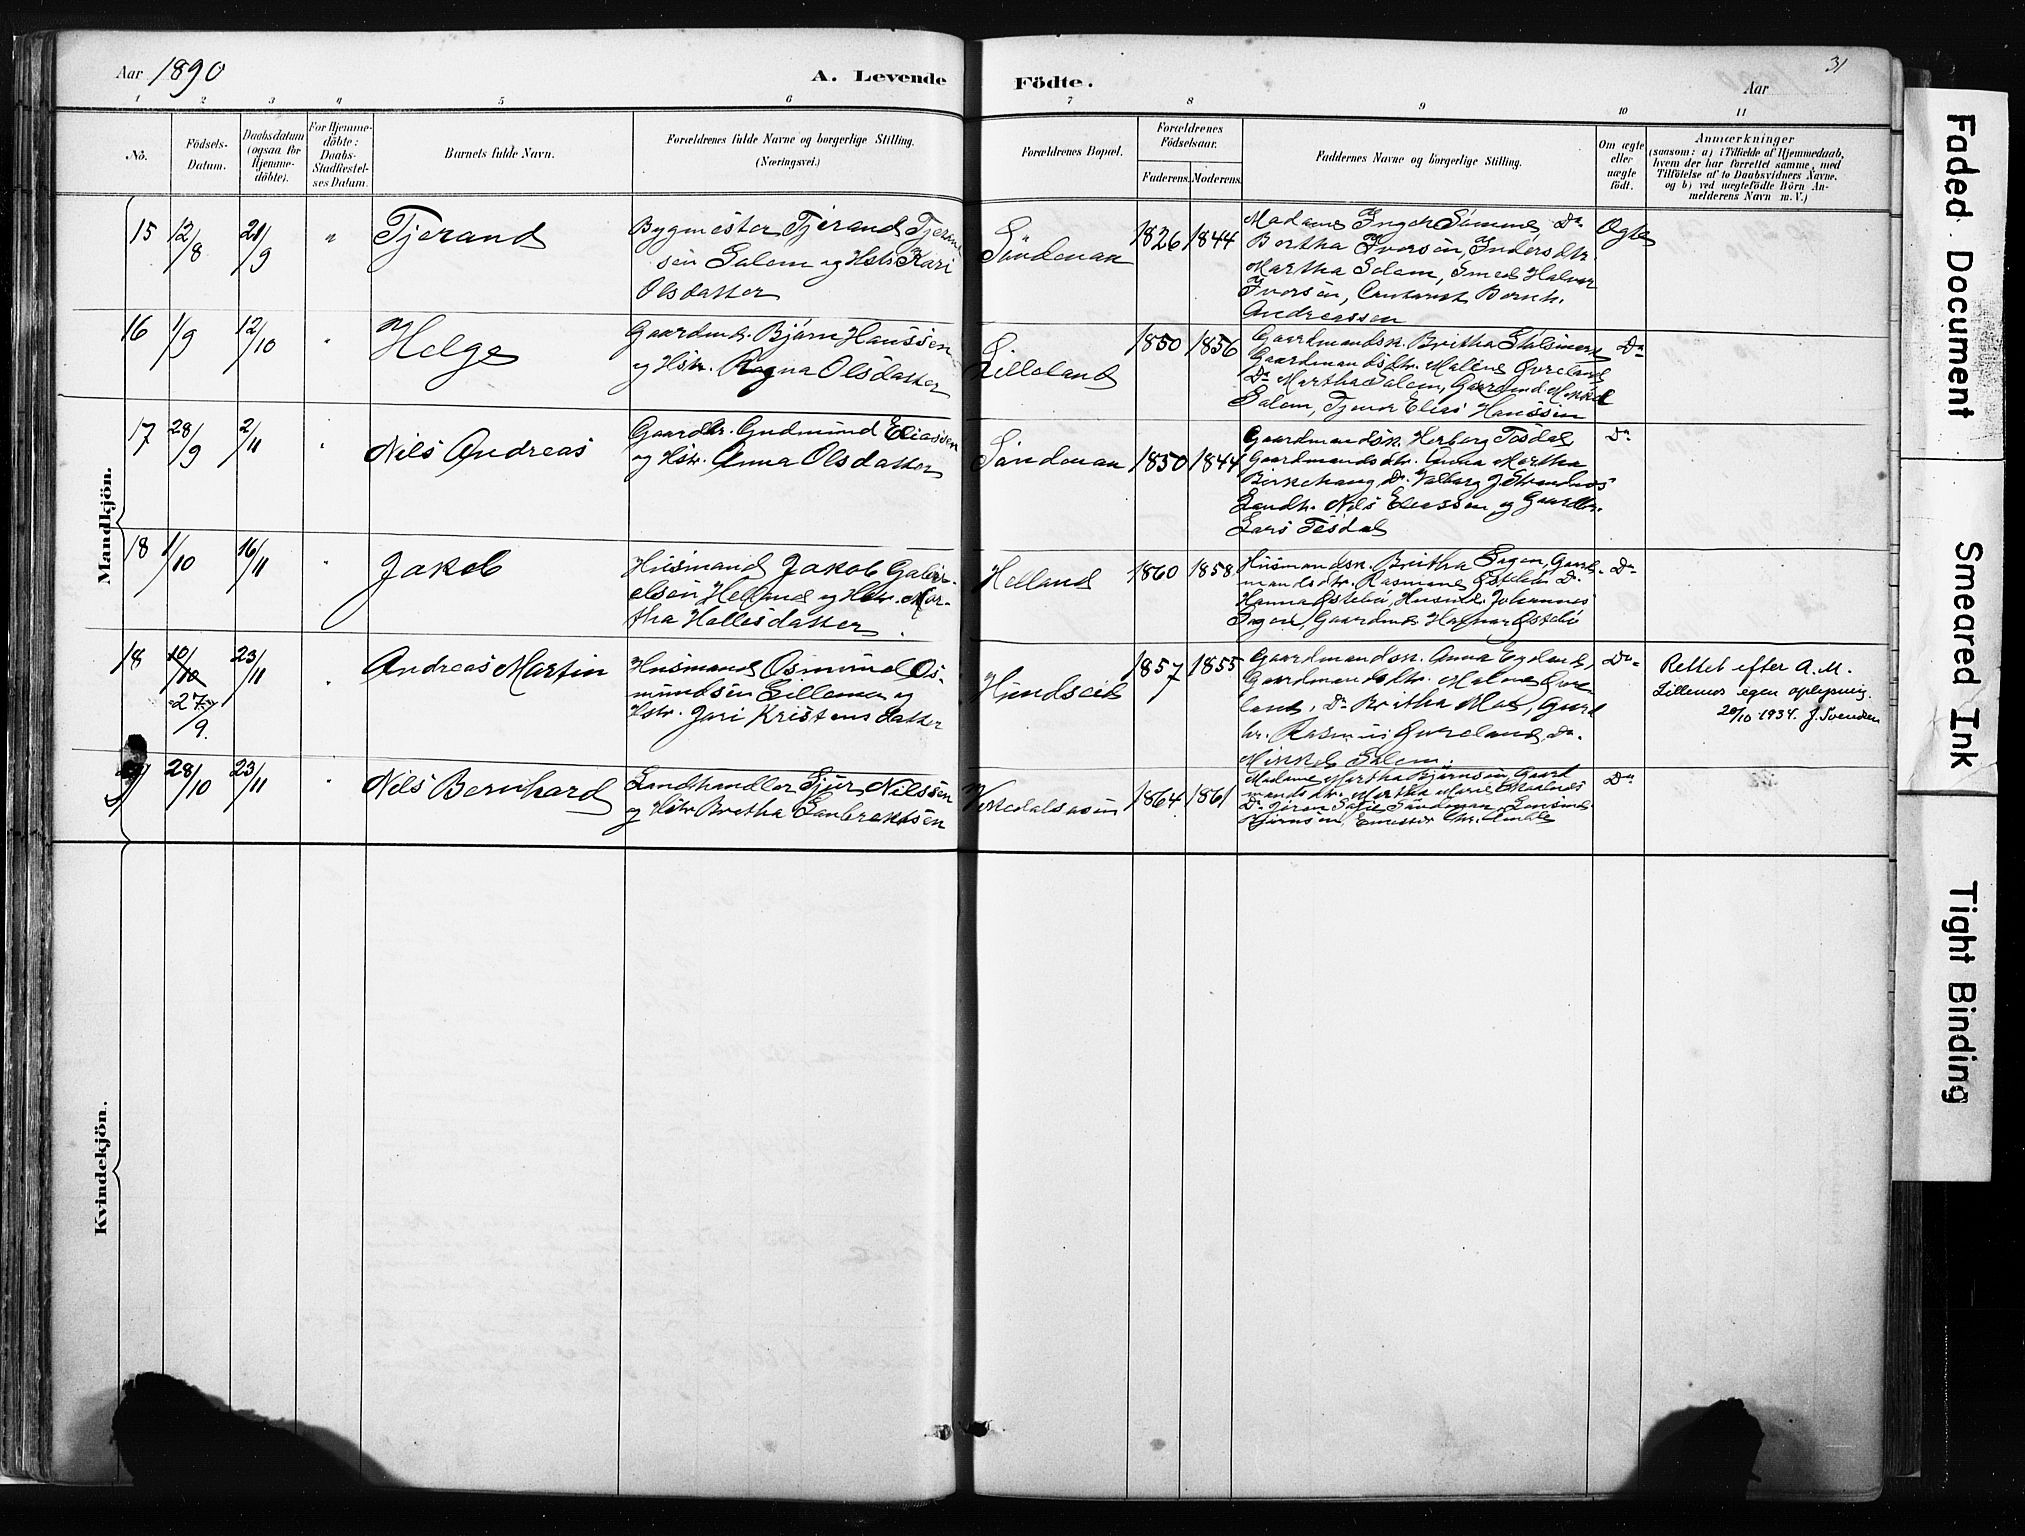 Aar 1890
A. Levende
Födte.
31
Aar
1 2 3 4 5 6 7 8 9 10 11
No.
Födsels-
Datum.
Daabsdatum
(ogsaa for
Hjemme-
döbte).
For Hjemme-
döbte:
Daabs-
Stadfæstel-
ses Datum.
Barnets fulde Navn.
Forældrenes fulde Navne og borgerlige Stilling.
(Næringsvei.)
Forældrenes Bopæl.
Forældrenes
Födselsaar.
Faderens.
Moderens.
Faddernes Navne og borgerlige Stilling.
Om ægte
eller
uægte
födt.
Anmærkninger
(saasom: a) i Tilfælde af Hjemmedaab,
hvem der har forrettet samme, med
Tilföielse af to Daabsvidners Navne,
og b) ved uægtefödte Börn An-
melderens Navn m. V.)
Mandkjön.
15 12/8 21/9 " Tjerand
Bygmester Tjerand Tjerand
sen Salem og Hstr. Kari
Olsdatter
1826 1844
Madame Inger Sømme, Do
Bertha Iversen, Inders dtr.
Martha Salem, Smed Halvor
Iversen,
Andreassen
Ægte
16 1/9 12/10 " Helge
Gaardmd. Bjørn Hanssen
og Hstr. Ragna Olsdatter
Lilleland
1850 1856
Gaardmandsk. Britha
Gaardmandsdtr. Malene Qvreland,
Do Martha Salem, Gaardmd. Mikkel
Salem, Hanssen
Do
17 28/9 2/11 " Nils Andreas
Gaardbr. Gudmund Eliassen
og Hstr. Anna Olsdatter
1850 1844
Gaardmandsk. Herborg Tesdal
Gaardmandsdtr. Anna Martha
Birkehaug, Do Valborg
Landh. Nils Eliassen og Gaardbr.
Lars Tesdal
Do
18 1/10 16/11 " Jakob
Husmand Jakob Gabri-
elsen Helland og Hstr. Mar-
tha Hellesdatter
Helland
1860 1858
Husmandsk. Britha Sagen, Gaard-
mandsdtr. Rasmine Østebø Do
Hanna Østebø, Husmd. Johannes
Sagen, Gaardmd. Østebø
Do
18 10/10 23/11 " Andreas Martin
27/9.
Husmand Osmund Os-
mundsen Lillemo og
Hstr. Jori Kristensdatter
Hundseid
1857 1855
Gaardmandsk. Anna Egeland,
Gaardmandsdtr. Malene Qvre-
land, Do Britha Moe, Gaard
br. Rasmus Qvreland, Do
Mikkel Salem.
Do
Rettet efter A. M.
Lillemos egen oplysning.
20/10 1934. J. Svendsen
28/10 23/11 " Nils Bernhard
Landhandler Sjur Nilssen
og Hstr. Britha Lambrektsen
1864 1861
Madame Martha Bjørnsen, Gaard
mandsdtr. Martha Marie
Do
Bjørnsen,
Do
Kvindekjön.
Faded Document
Smeared Ink
Tight Binding